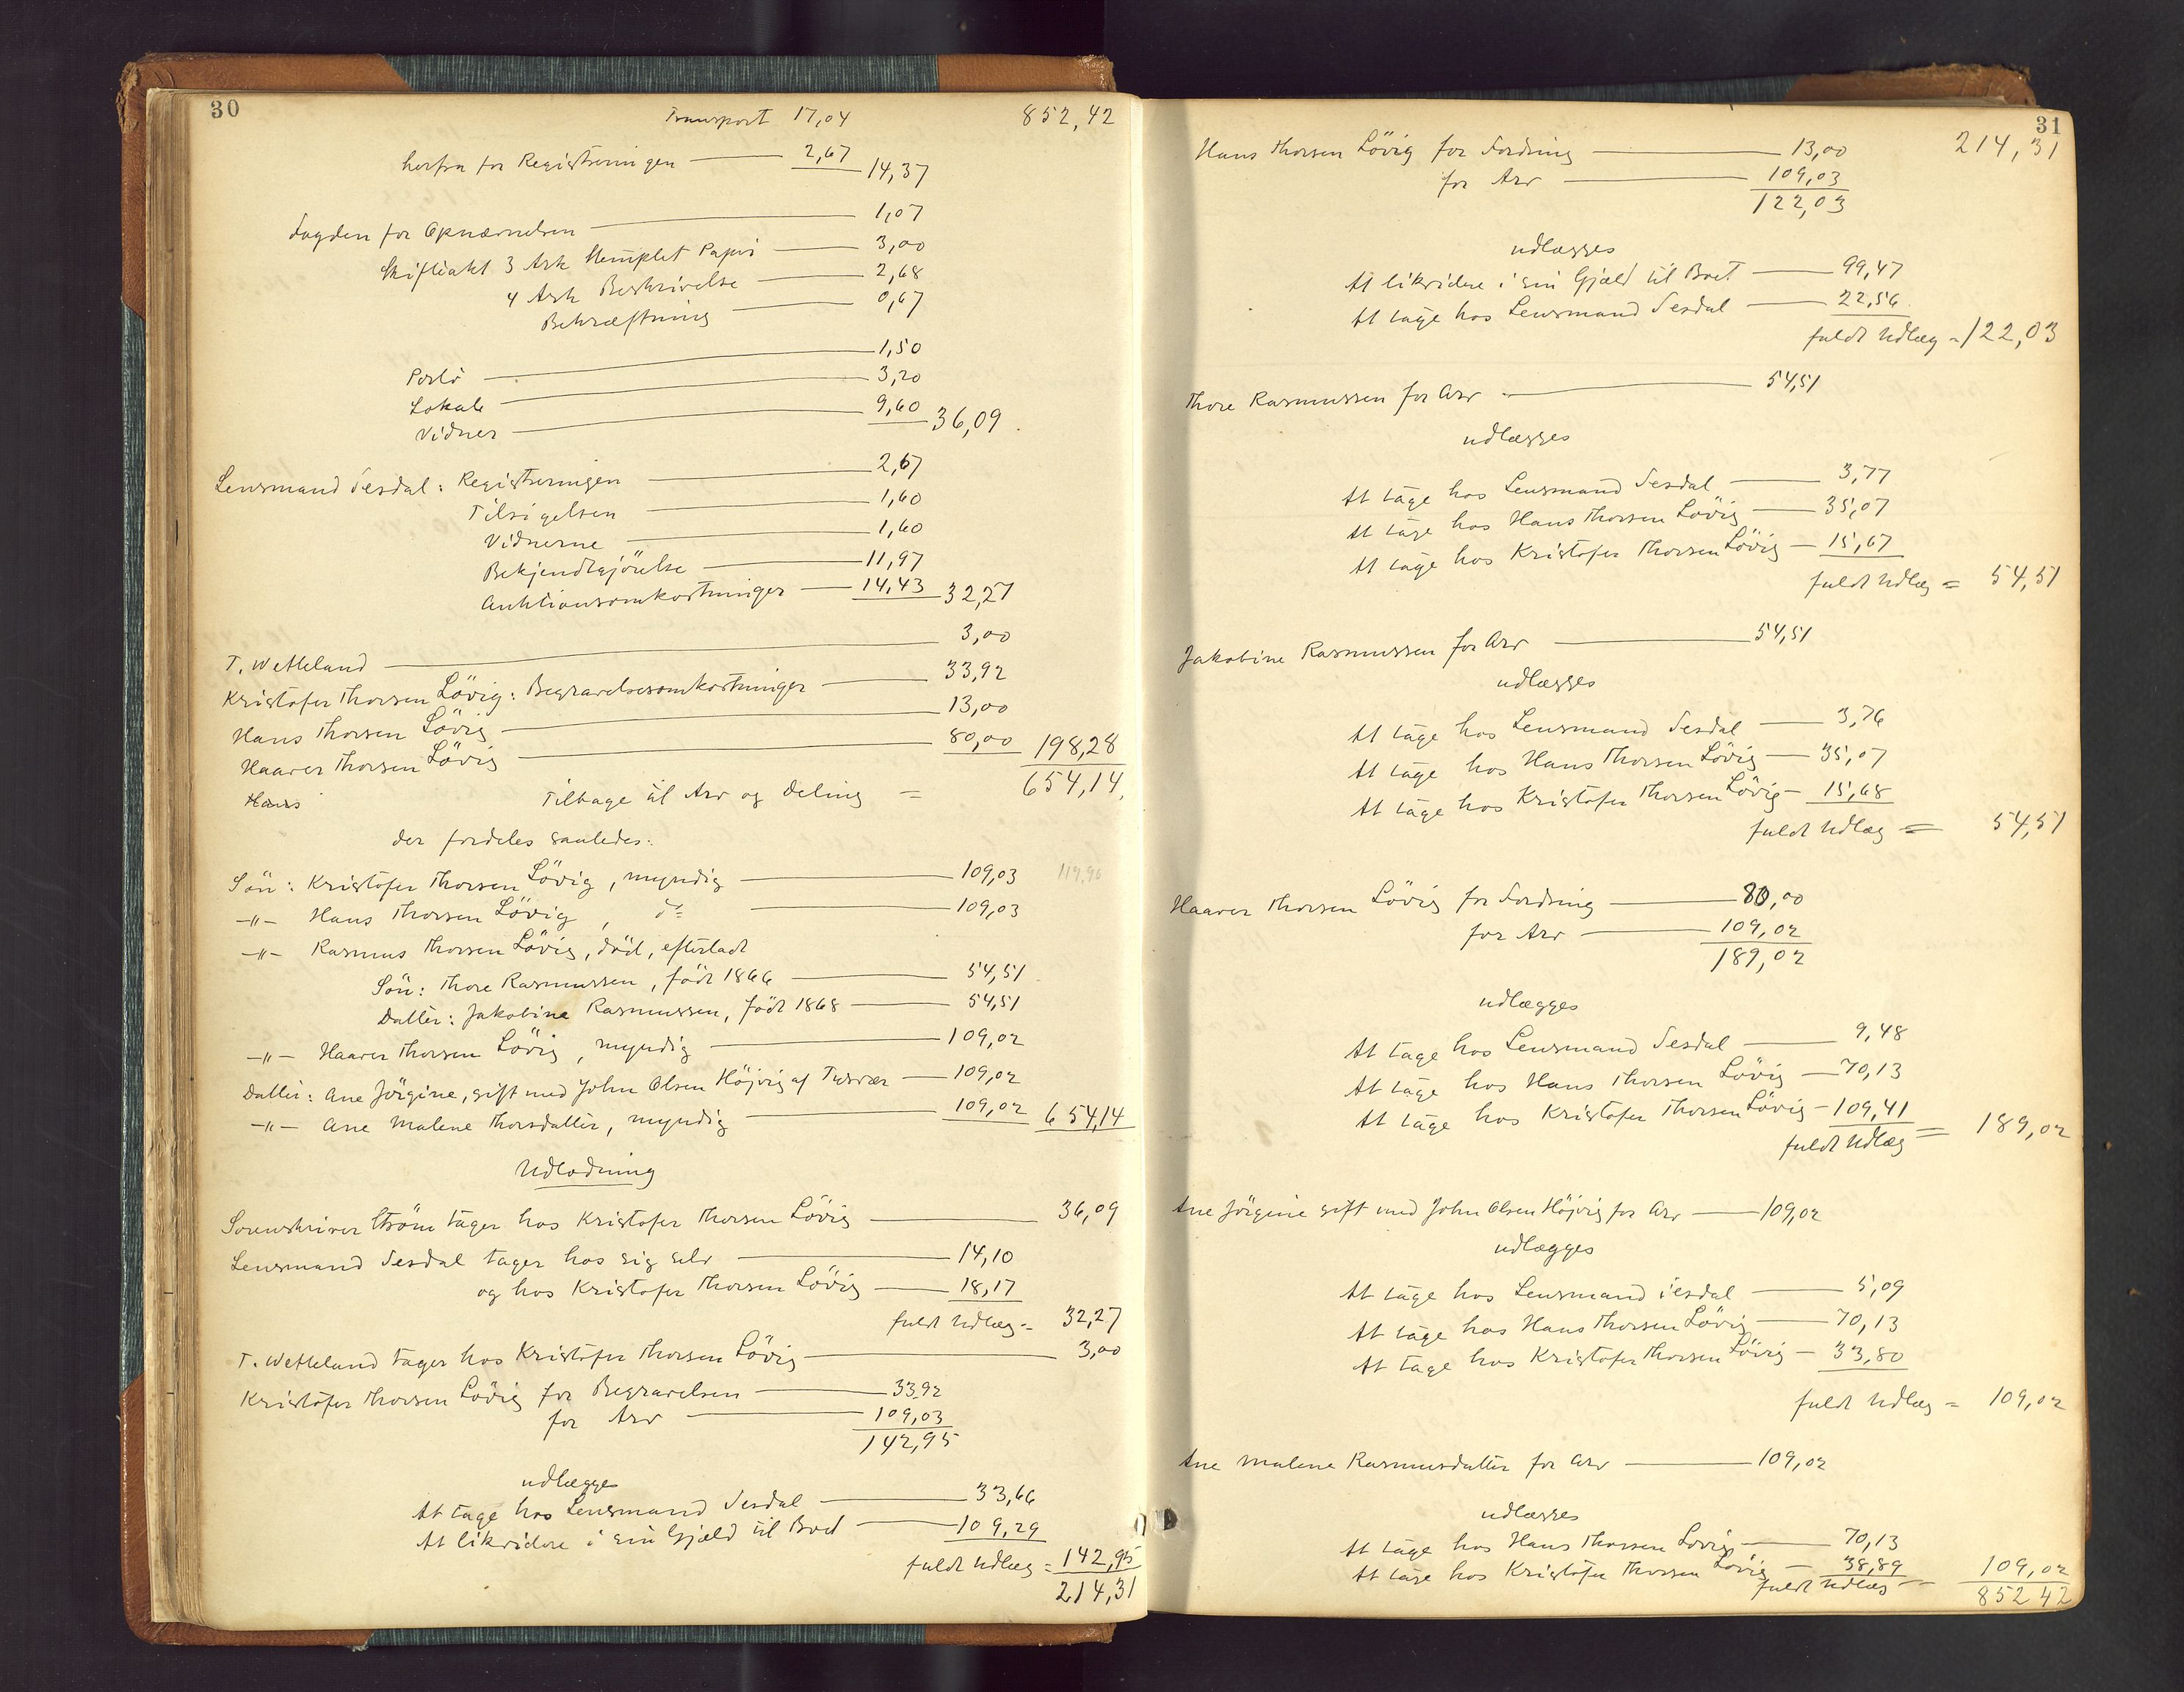 30
Transport 17,04 852,42
herfra for Registreringen 2,67 14,37
Fogden for Opnævnelsen 1,07
Skifteakt 3 Ark stemplet Papir 3,00
4 Ark Beskrivelse 2,68
Bekræftning 0,67
Porto 1,50
Lokale 3,20
Vidner 9,60 36,09
Lensmand Sesdal: Registreringen 2,67
Tilsigelsen 1,60
Vidnerne 1,60
Bekjendtgjörelse 11,97
Auktionsomkostninger 14,43 32,27
T. Wetteland 3,00
Kristofer Thorsen Lövig: Begravelsesomkostninger 33,92
Hans Thorsen Lövig 13,00
Haaver Thorsen Lövig 80,00 198,28
Hans Tilbage til Arv og Deling = 654,14
der fordeles saaledes:
Sön: Kristofer Thorsen Lövig, myndig 109,03
-"- Hans Thorsen Lövig, do 109,03
-"- Rasmus Thorsen Lövig, död, efterladt
Sön: Thore Rasmussen, födt 1866 54,51
Datter: Jakobine Rasmussen, födt 1868 54,51
-"- Haaver Thorsen Lövig, myndig 109,02
Datter: Ane Jörgine, gift med John Olsen Höjvig af Tysvær 109,02
-"- Ane Malene Thorsdatter, myndig 109,02 654,14
Udlodning
Sorenskriver Ström tager hos Kristofer Thorsen Lövig 36,09
Lensmand Sesdal tager hos sig selv 14,10
og hos Kristofer Thorsen Lövig 18,17
fuldt Udlæg = 32,27
T. Wetteland tager hos Kristofer Thorsen Lövig 3,00
Kristofer Thorsen Lövig for Begravelsen 33,92
for Arv 109,03
142,95
udlægges
At tage hos Lensmand Sesdal 33,66
At likvidere i sin Gjæld til Boet 109,29
fuldt Udlæg = 142,95
214,31
31
Hans Thorsen Lövig for Fordring 13,00 214,31
for Arv 109,03
122,03
udlægges
At likvidere i sin Gjæld til Boet 99,47
At tage hos Lensmand Sesdal 22,56
fuldt Udlæg = 122,03
Thore Rasmussen for Arv 54,51
udlægges
At tage hos Lensmand Sesdal 3,77
At tage hos Hans Thorsen Lövig 35,07
At tage hos Kristofer Thorsen Lövig 15,67
fuldt Udlæg = 54,51
Jakobine Rasmussen for Arv 54,51
udlægges
At tage hos Lensmand Sesdal 3,76
At tage hos Hans Thorsen Lövig 35,07
At tage hos Kristofer Thorsen Lövig 15,68
fuldt Udlæg = 54,51
Haaver Thorsen Lövig for Fordring 80,00
for Arv 109,02
189,02
udlægges
At tage hos Lensmand Sesdal 9,48
At tage hos Hans Thorsen Lövig 70,13
At tage hos Kristofer Thorsen Lövig 109,41
fuldt Udlæg = 189,02
Ane Jörgine gift med John Olsen Höjvig for Arv 109,02
udlægges
At tage hos Lensmand Sesdal 5,09
At tage hos Hans Thorsen Lövig 70,13
At tage hos Kristofer Thorsen Lövig 33,80
fuldt Udlæg = 109,02
Ane Malene Rasmusdatter for Arv 109,02
udlægges
At tage hos Hans Thorsen Lövig 70,13
At tage hos Kristofer Thorsen Lövig 38,89
fuldt Udlæg = 109,02
852,42